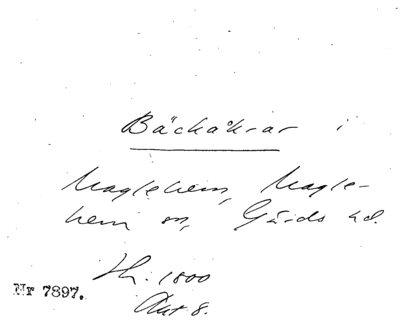 Bäckåkrar i
Maglehem, Magle-
hem sn, Gärds hd.
Sk. 1800
Akt 8.
Nr 7897.